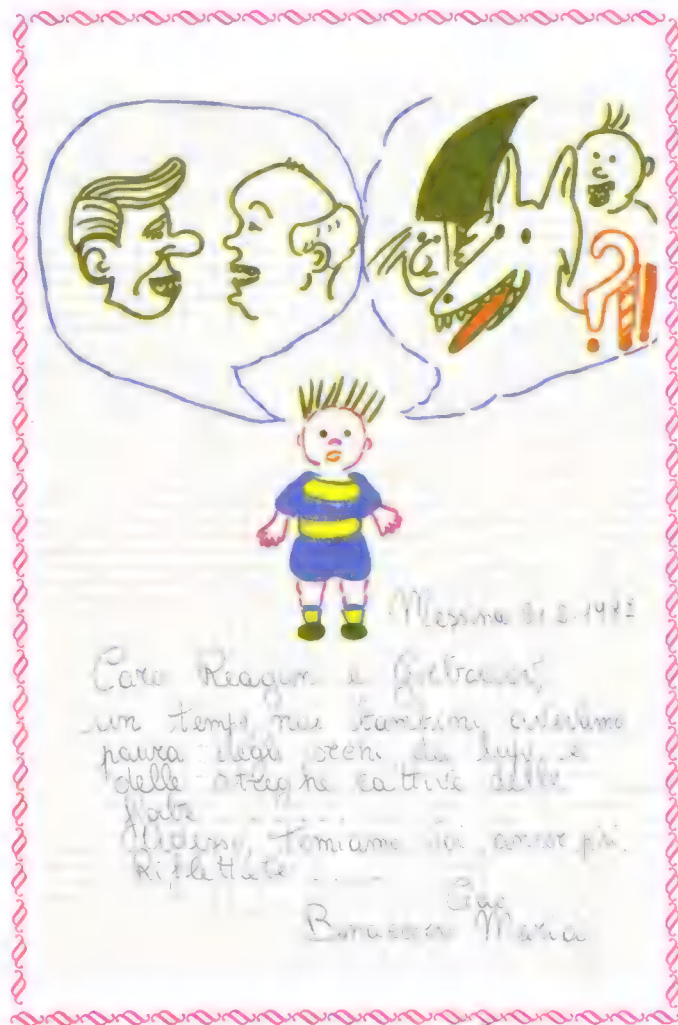 ?!!
Messina 21.2.198
Caro Reagan e Gorbaciov,
un tempo noi bambini avevamo
paura degli orchi dei lupi, e
delle streghe cattive delle
fiabe
Adesso, temiamo voi ancor più.
Riflettete.......
Ciao
Maria